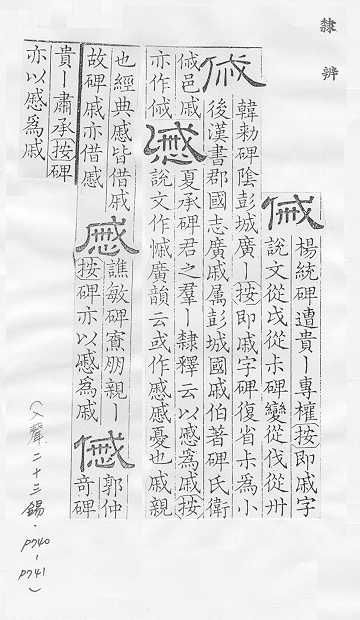 隸辨
楊統碑遭貴丨專權按即戚字
說文從戉從尗碑變從伐從卅
韓勑碑陰彭城廣丨按即戚字碑復省尗為小
後漢書郡國志廣戚属彭城國戚伯著碑氏衛
邑戚
亦作
夏承碑君之羣丨隸釋云以慼為戚按
說文作慽廣韻云或作慼慼憂也戚親
也經典慼皆借戚
故碑戚亦借慼
譙敏碑寮朋親丨
按碑亦以慼為戚
郭仲
奇碑
貴丨肅承按碑
亦以慼爲戚
（入聲二十三錫．p740-p741）